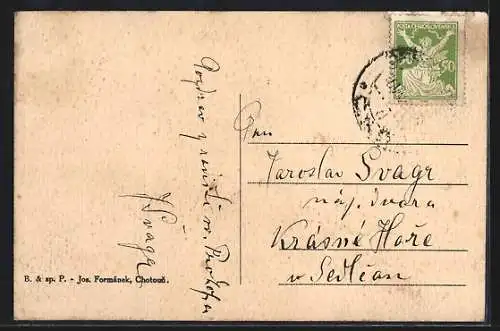 Pozdrav z
Švagr
B. & sp. P. - Jos. Formánek, Chotouň.
POŠTA ČESKOSLOVENSKÁ
50
Pan
Jaroslav Švagr
náj. dvora
Krásné Hoře
v Sedlčan